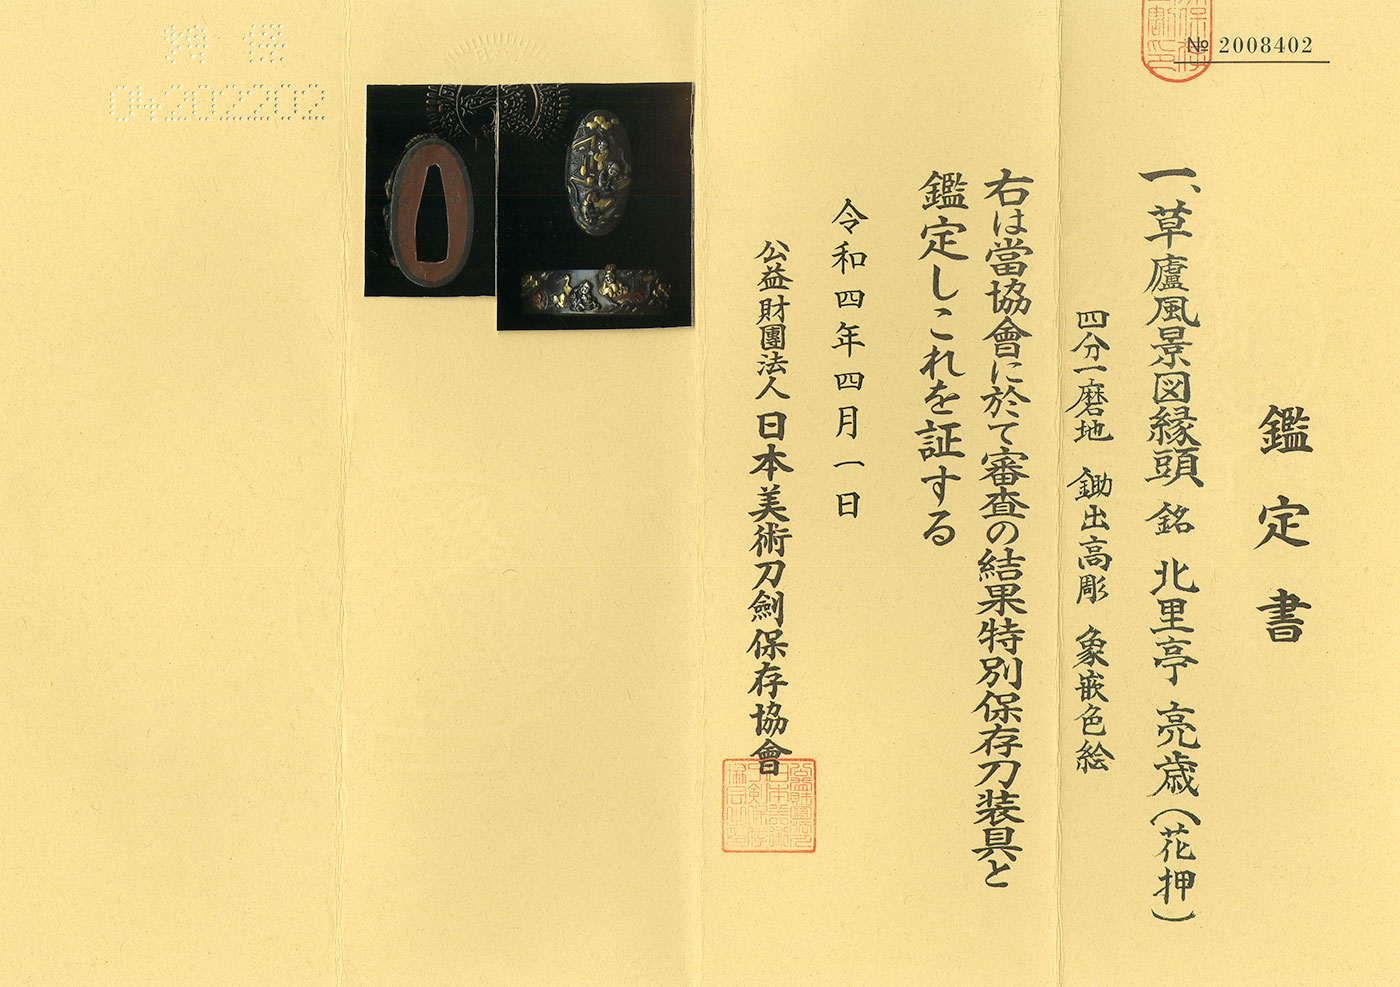 № 2008402
鑑定書
一、草廬風景図縁頭 銘 北里亭 亮歳(花押)
四分一磨地 鋤出高彫 象嵌色絵
右は當協會に於て審査の結果特別保存刀装具と
鑑定しこれを証する
令和四年四月一日
公益財團法人 日本美術刀劍保存協會
04202202